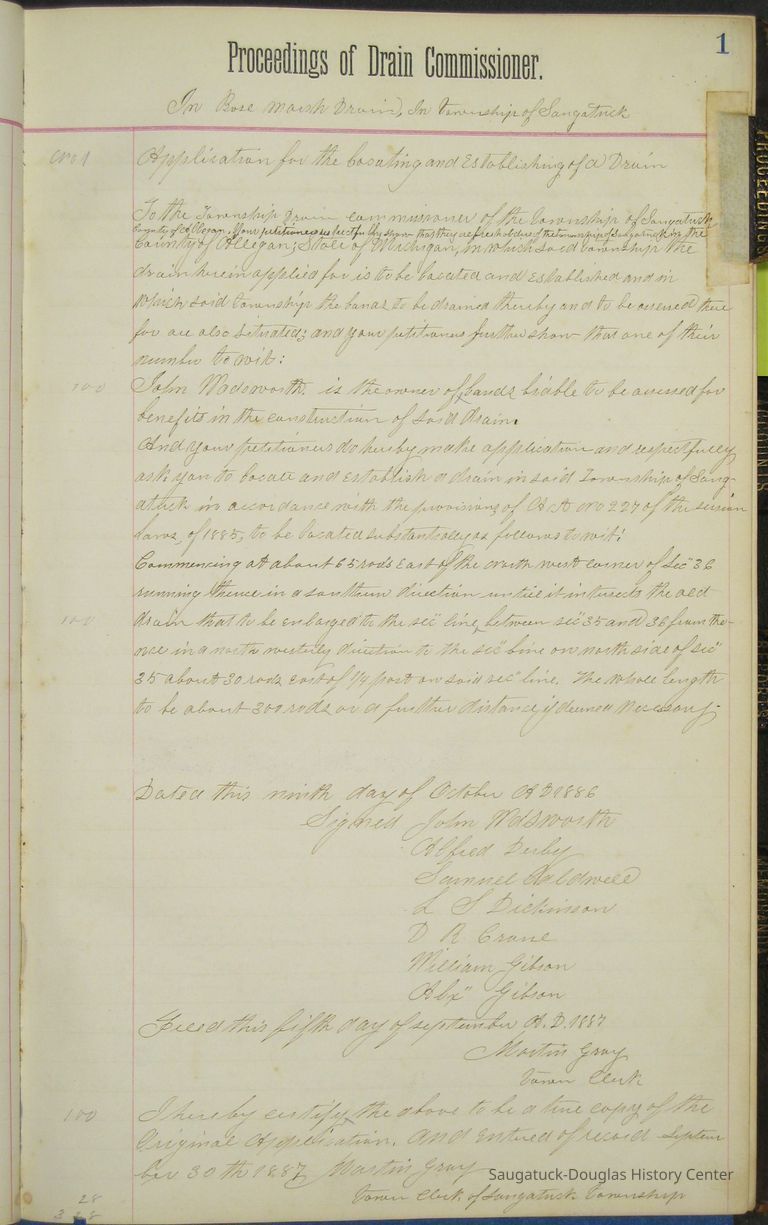 1
Proceedings of Drain Commissioner.
In Bose Marsh Drain, In township of Saugatuck
No 1
Application for the Locating and Establishing of a Drain
To the Township Drain commissioner of the township of Saugatuck
County of Allegan. Your petitioners respectfully show that they are freeholders of the township of Saugatuck in the
County of Allegan, State of Michigan, in which said township the
drain herein applied for is to be located and established and in
which said township the lands to be drained thereby and to be assessed there
for are also situated; and your petitioners further show that one of their
number to wit:
100
John Wadsworth. is the owner of lands liable to be assessed for
benefits in the construction of said drain.
And your petitioners do hereby make application and respectfully
ask you to locate and establish a drain in said Township of Saug-
atuck in accordance with the provisions of Act No 227 of the session
laws, of 1885, to be located substantially as follows to wit:
Commencing at about 65 rods East of the north west corner of Sec 36
running thence in a southern direction until it intersects the old
100
drain that to be enlarged to the sec line, between sec 35 and 36 from the-
nce in a north westerly direction to the sec line on north side of sec
35 about 30 rods East of 1/4 post on said sec line. The whole length
to be about 300 rods or a further distance if deemed necessary.
Dated this ninth day of October A D 1886
Signed John Wadsworth
Alfred Derby
Samuel Caldwell
L S Dickinson
D R Crane
William Gibson
Alx" Gibson
Filed this fifth day of September A. D. 1887
Martin Gray
Town Clerk
100
I hereby certify the above to be a true copy of the
Original Application. And Entered of record Septem
ber 30th 1887 Martin Gray
28
Town Clerk of Saugatuck Township
328
Saugatuck-Douglas History Center